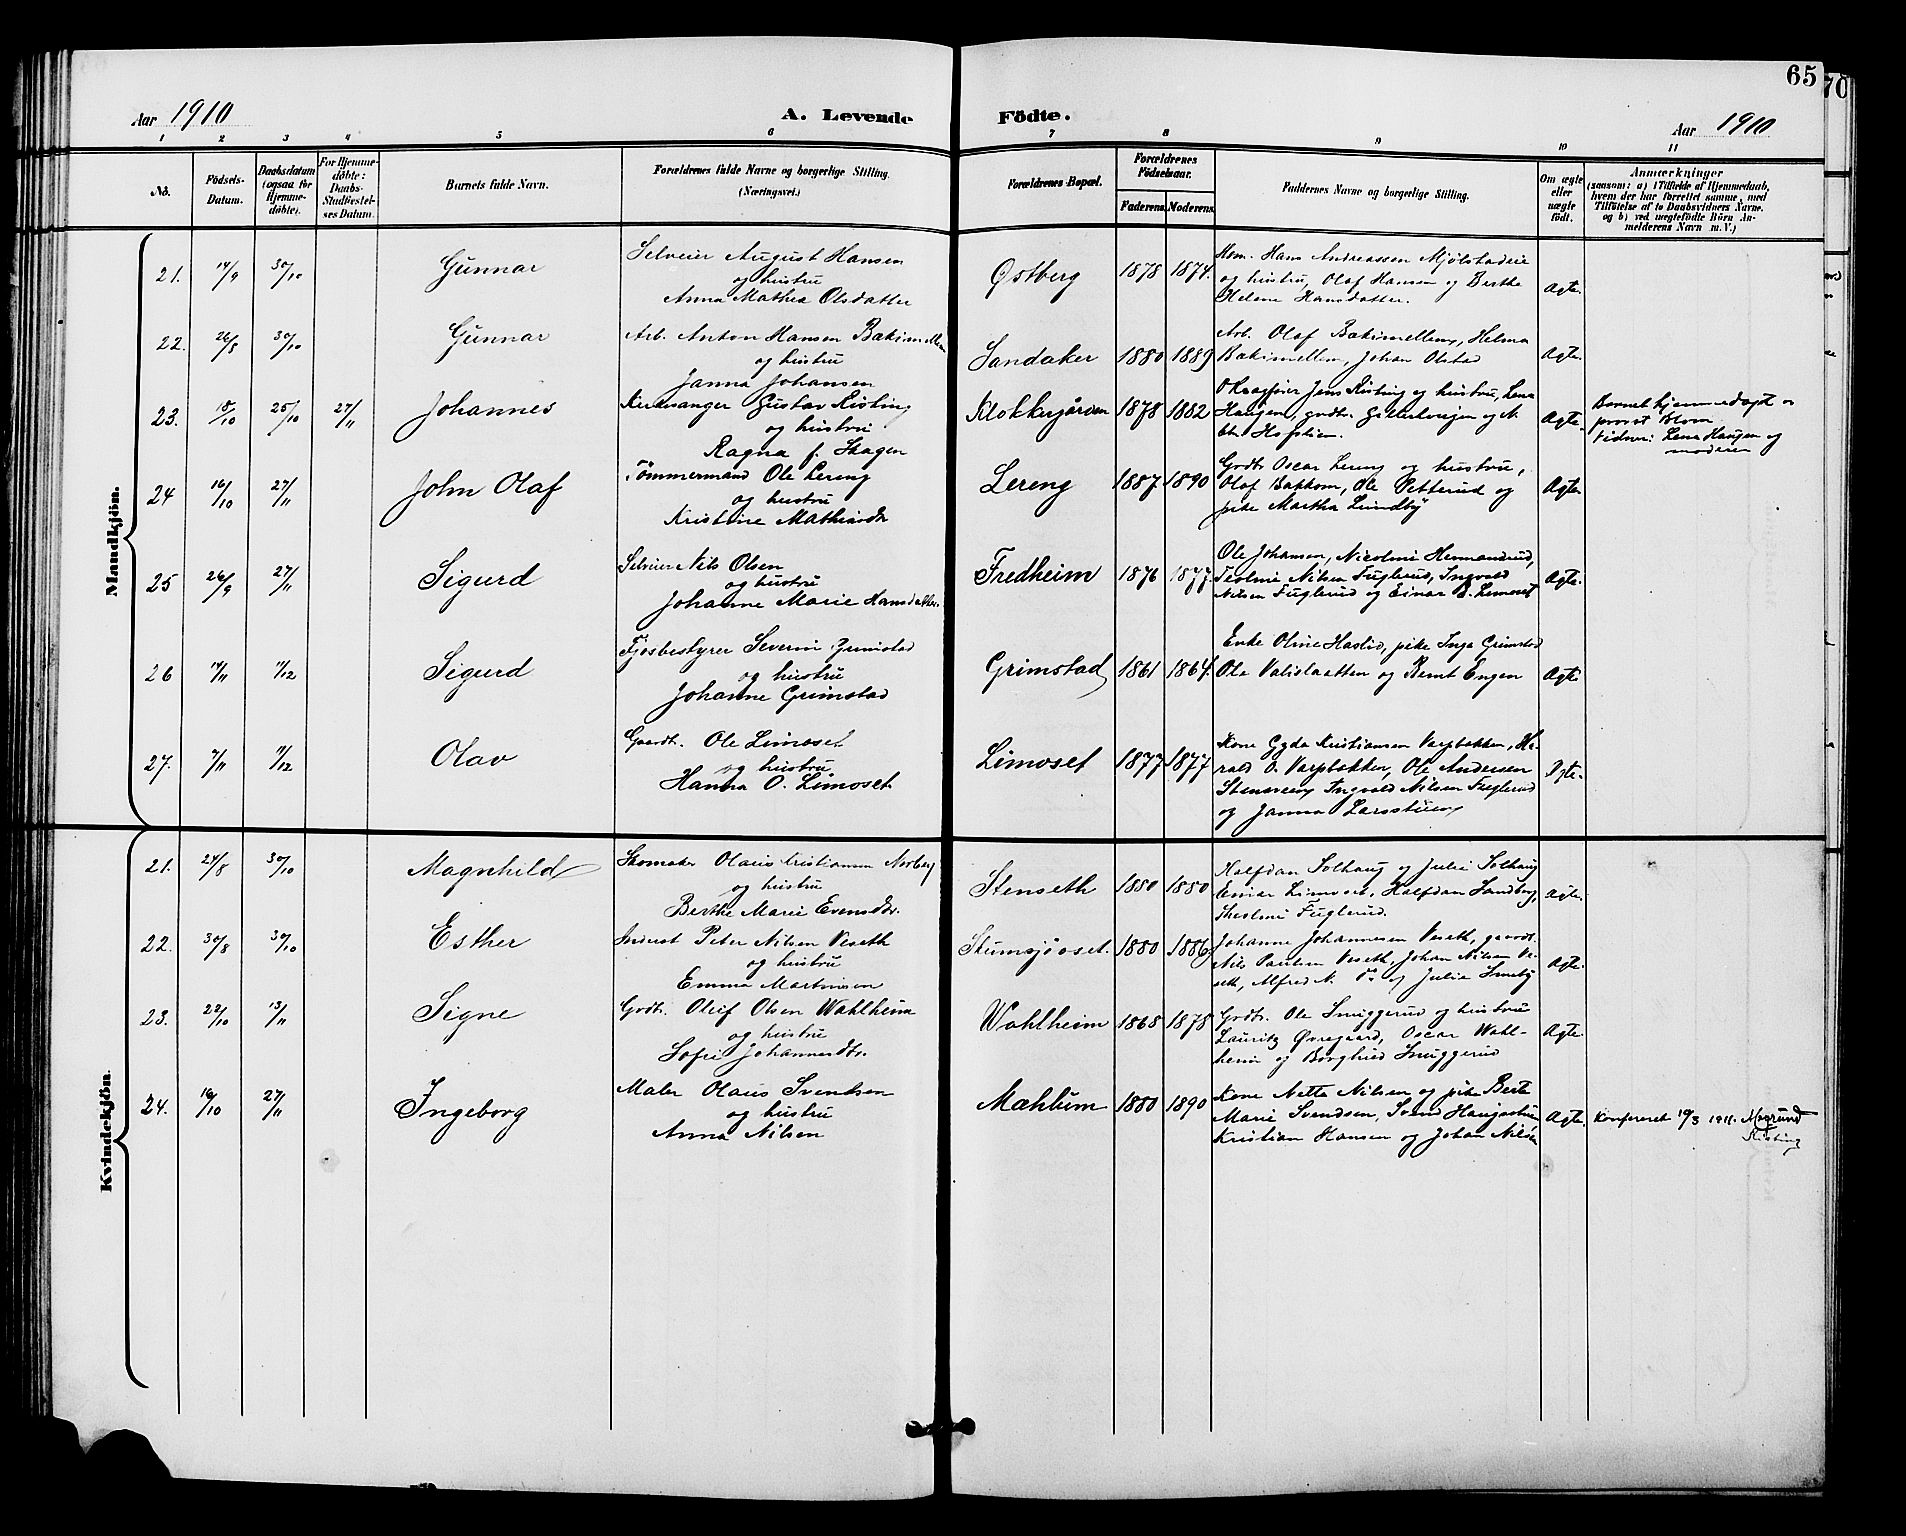 65
70
Aar 1910
A. Levende Födte.
Aar 1910
1 2 3 4 5 6 7 8 9 10 11
No.
Födsels-
Datum.
Daabsdatum
(ogsaa for
Hjemme-
döbte).
For Hjemme-
döbte:
Daabs-
Stadfæstel-
ses Datum.
Barnets fulde Navn.
Forældrenes fulde Navne og borgerlige Stilling.
(Næringsvei.)
Forældrenes Bopæl.
Forældrenes
Födselsaar.
Faderens.
Moderens.
Faddernes Navne og borgerlige Stilling.
Om ægte
eller
uægte
født.
Anmærkninger
(saasom: a) i Tilfælde af Hjemmedaab,
hvem der har forrettet samme, med
Tilföielse af to Daabsvidners Navne.
og b) ved uægtefödte Börn An-
melderens Navn m. V.)
Mandkjön.
21. 14/9 30/10 Gunnar
Selveier August Hansen
og hustru
Anna Mathea Olsdatter
Østberg 1878 1874.
Hans Andreassen Mjølstadeie
og hustru, Olaf Hansen og Berthe
Helene Hansdatter.
Ægte.
22. 26/8 30/10 Gunnar
Arb. Anton Hansen
og hustru
Janna Johansen
Sandaker 1880 1889
Arb. Olaf Bakimellem, Helma
Bakimellem, Johan Olstad
Ægte.
23. 18/10 25/10 27/11 Johannes
Kirkesanger Gustav Risting
og hustru
Ragna f. Skagen
Klokkergården 1878 1882
Jens Risting og hustru, Lena
Haugen, grdbr. og
Hofstien.
Ægte.
Barnet hjemmedøpt
provst Blom
vidner: Lena Haugen og
moderen
24 16/10 27/11 John Olaf
Tømmermand Ole Lereng
og hustru
Kristine Mathiasdtr
Lereng 1887. 1890
Grdbr Oscar Lereng og hustru,
Olaf Bakkom, Ole Petterud og
pike Martha Lundby
Ægte.
25 26/9 27/11 Sigurd
Selveier Nils Olsen
og hustru
Johanne Marie Hansdatter.
Fredheim 1876 1877.
Ole Johansen, Nicoline Hermandrud,
Teoline Nilsen Fuglerud, Ingvald
Nilsen Fuglerud og Einar B. Limoset
Ægte.
26 14/11 11/12 Sigurd
Fjøsbestyrer Severin Grimstad
og hustru
Johanne Grimstad
Grimstad 1861 1864.
Enke Oline Haslid, pike Inga Grimstad
Ole og Bernt Engen
Ægte
27. 7/11 11/12 Olav
Gaardbr. Ole Limoset
og hustru
Hanna O. Limoset.
Limoset 1877 1877
Kone Gyda Kristiansen Varpbakken, Ha-
rald O. Varpbakken, Ole Andersen
Stensveen, Ingvald Nilsen Fuglerud
og Janna Larsstuen
Ægte.
Kvindekjön.
21. 24/8 30/10 Magnhild
Skomaker Olaus Kristiansen Norberg
og hustru
Berthe Marie Evensdtr.
Stenseth 1880 1880
Halfdan Solhaug og Julie Solhaug
Einar Limoset, Halfdan Sandberg,
Theoline Fuglerud.
Ægte.
22. 30/8 30/10 Esther
Inderst Peter Nilsen Veseth
og hustru
Emma Martinsen
Stumsjøoset. 1880 1886
Johanne Johannesen Veseth, gaardbr.
Nils Paulsen Veseth, Johan Nilsen Ve-
seth, Alfred N. do og Julie Smeby
Ægte.
23. 22/10 13/11 Signe
Grdbr. Oluf Olsen Wahlheim
og hustru
Sofie Johannesdtr.
Wahlheim 1868 1878
Grdbr. Ole Smuggerud og hustru
Lauritz Øvregaard, Oscar Wahl-
heim og Borghild Smuggerud
Ægte.
24. 16/10 27/11 Ingeborg
Maler Olaus Svendsen
og hustru
Anna Nilsen
Mæhlum 1880 1890
Kone Netta Nilsen og pike Berte
Marie Svendsen, Svend Haugestuen
Kristian Hansen og Johan Nilsen
Ægte.
Konfereret 10/3 1911. Mogrund
Risting